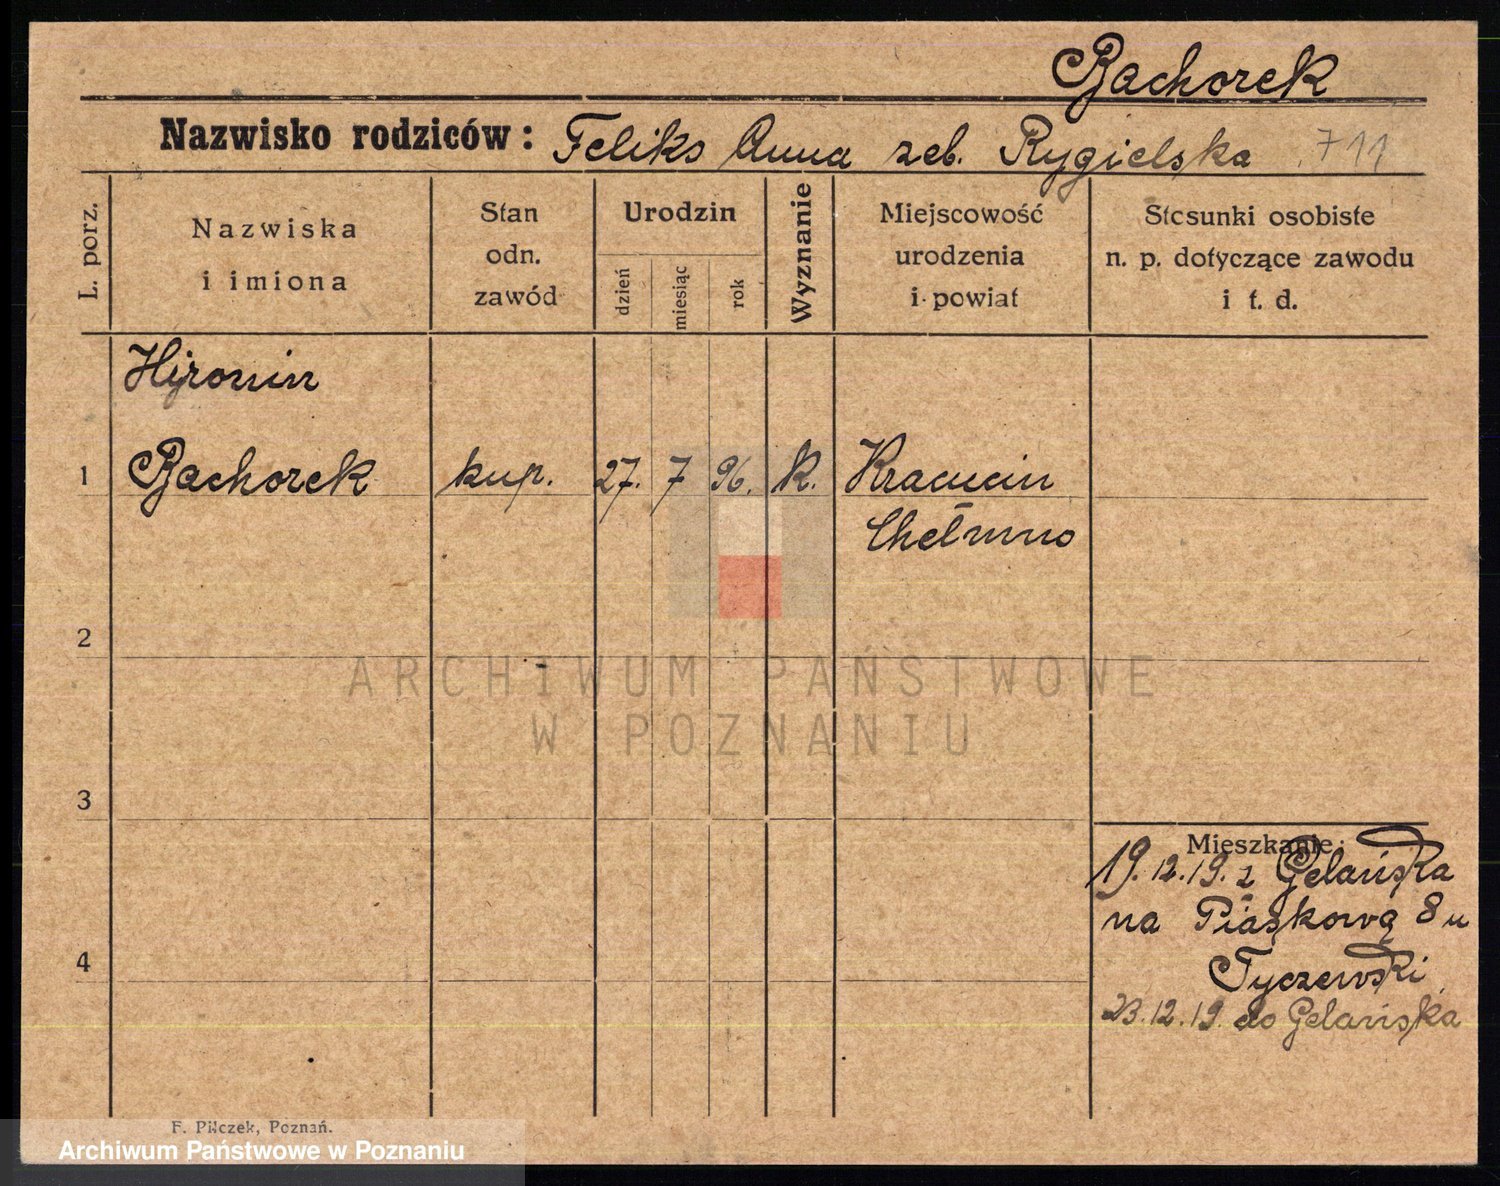 Bachorek
Nazwisko rodziców: Feliks Anna zeb. Rygielska 711
L. porz.
Nazwiska
i imiona
Stan
odn.
zawód
Urodzin
dzień
miesiąc
rok
Wyznanie
Miejscowość
urodzenia
i powiat
Stosunki osobiste
n. p. dotyczące zawodu
i t. d.
Hijronin
1 Bachorek kup. 27. 7 96. k. Kracucin
Chełmno
2
ARCHIWUM PAŃSTWOWE
W POZNANIU
3
Mieszkanie:
19.12.19. z Gdańska
na Piaskową 8 u
4 Tyczewski
23.12.19. do Gdańska
F. Pilczek, Poznań.
Archiwum Państwowe w Poznaniu